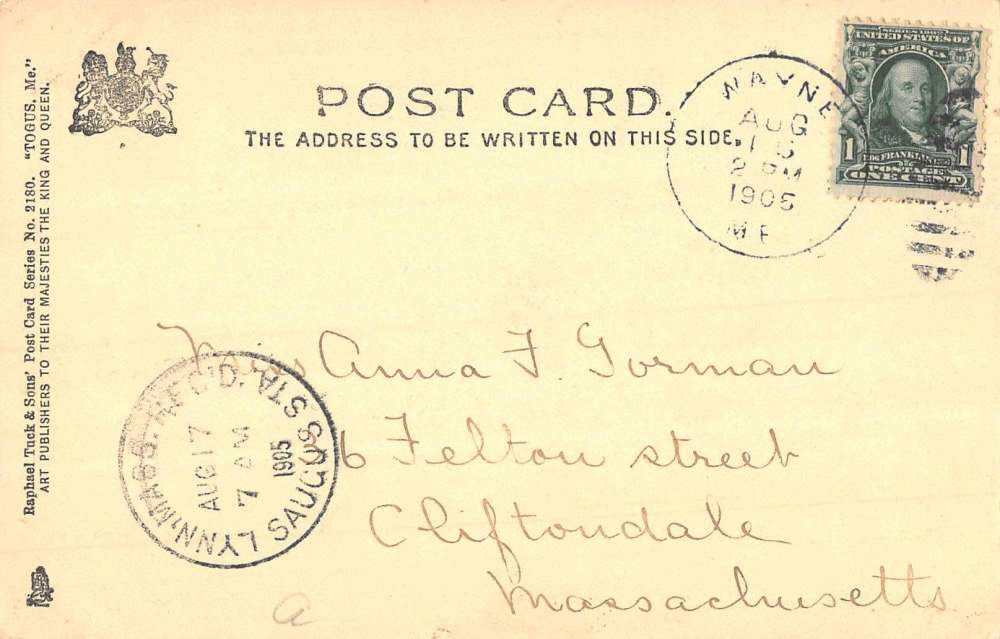 POST CARD.
THE ADDRESS TO BE WRITTEN ON THIS SIDE.
Raphael Tuck & Sons' Post Card Series No. 2180. "TOGUS, Me."
ART PUBLISHERS TO THEIR MAJESTIES THE KING AND QUEEN.
WAYNE
AUG
2 PM
1905
ME
SERIES 1902
UNITED STATES OF
AMERICA
1 FRANKLIN 1
POSTAGE
ONE CENT
Miss Anna F. Gorman
6 Felton street
Cliftondale
Massachusetts
LYNN, MASS. REC'D. SAUGUS STA.
AUG 17
7 AM
1905
a